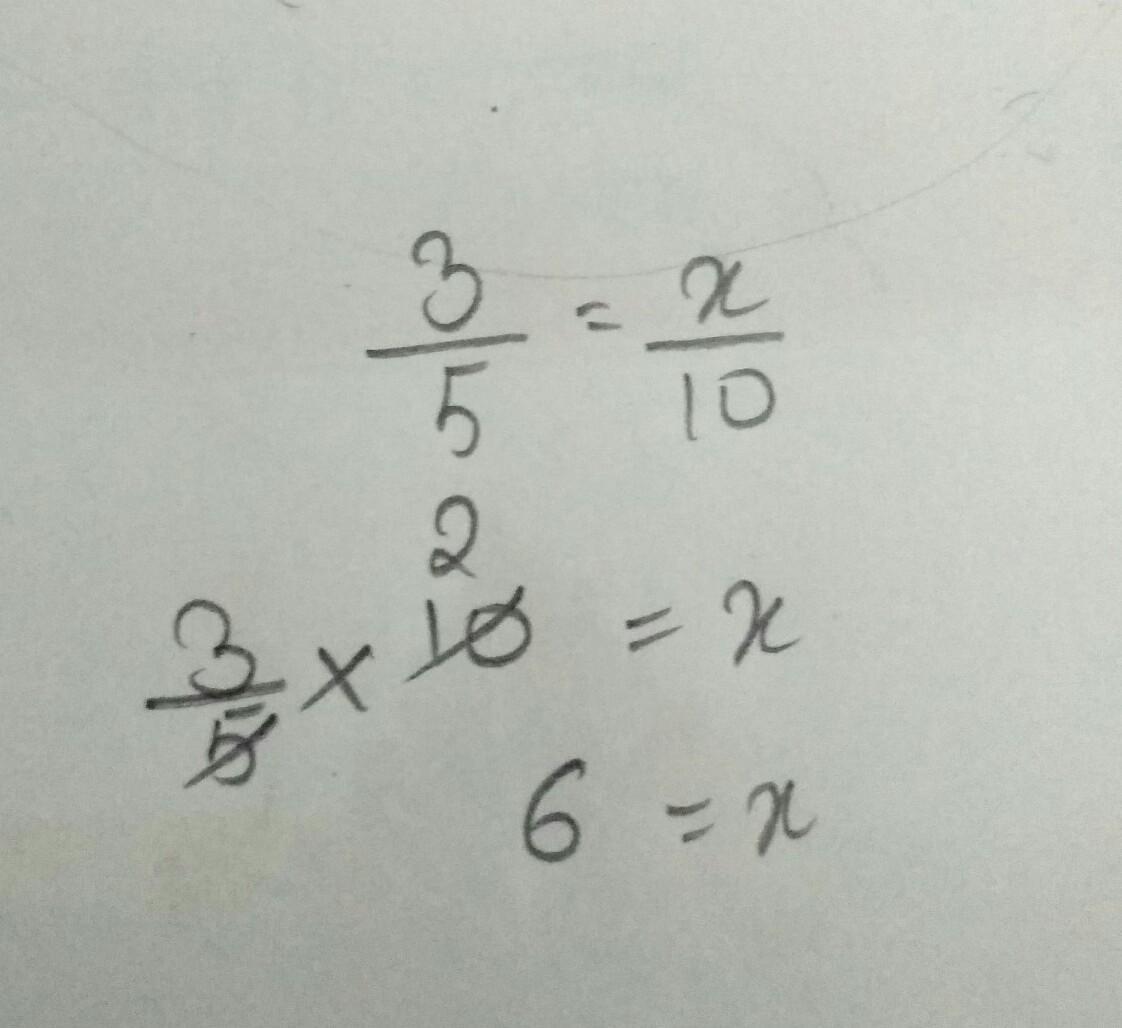 3/5 = x/10
2
3/5 × 10 = x
6 = x